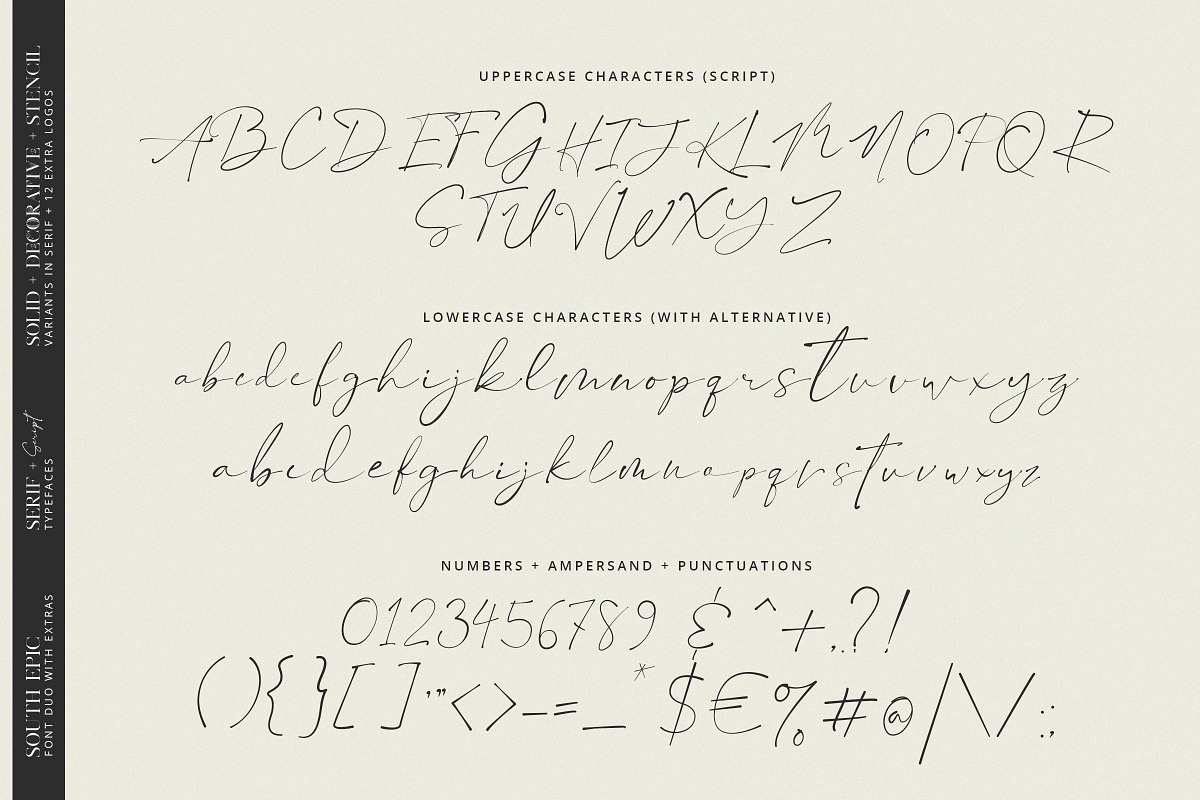 UPPERCASE CHARACTERS (SCRIPT)
ABCDEFGHIJKLMNOPQR
STUVWXYZ
LOWERCASE CHARACTERS (WITH ALTERNATIVE)
abcdefghijklmnopqrstuvwxyz
abcdefghijklmnopqrstuvwxyz
NUMBERS + AMPERSAND + PUNCTUATIONS
0123456789 &^+,.?!
(){}[]'"<>–=_*$€%#@/\/:;
SOLID + DECORATIVE + STENCIL
VARIANTS IN SERIF + 12 EXTRA LOGOS
SERIF + Script
TYPEFACES
SOUTH EPIC
FONT DUO WITH EXTRAS